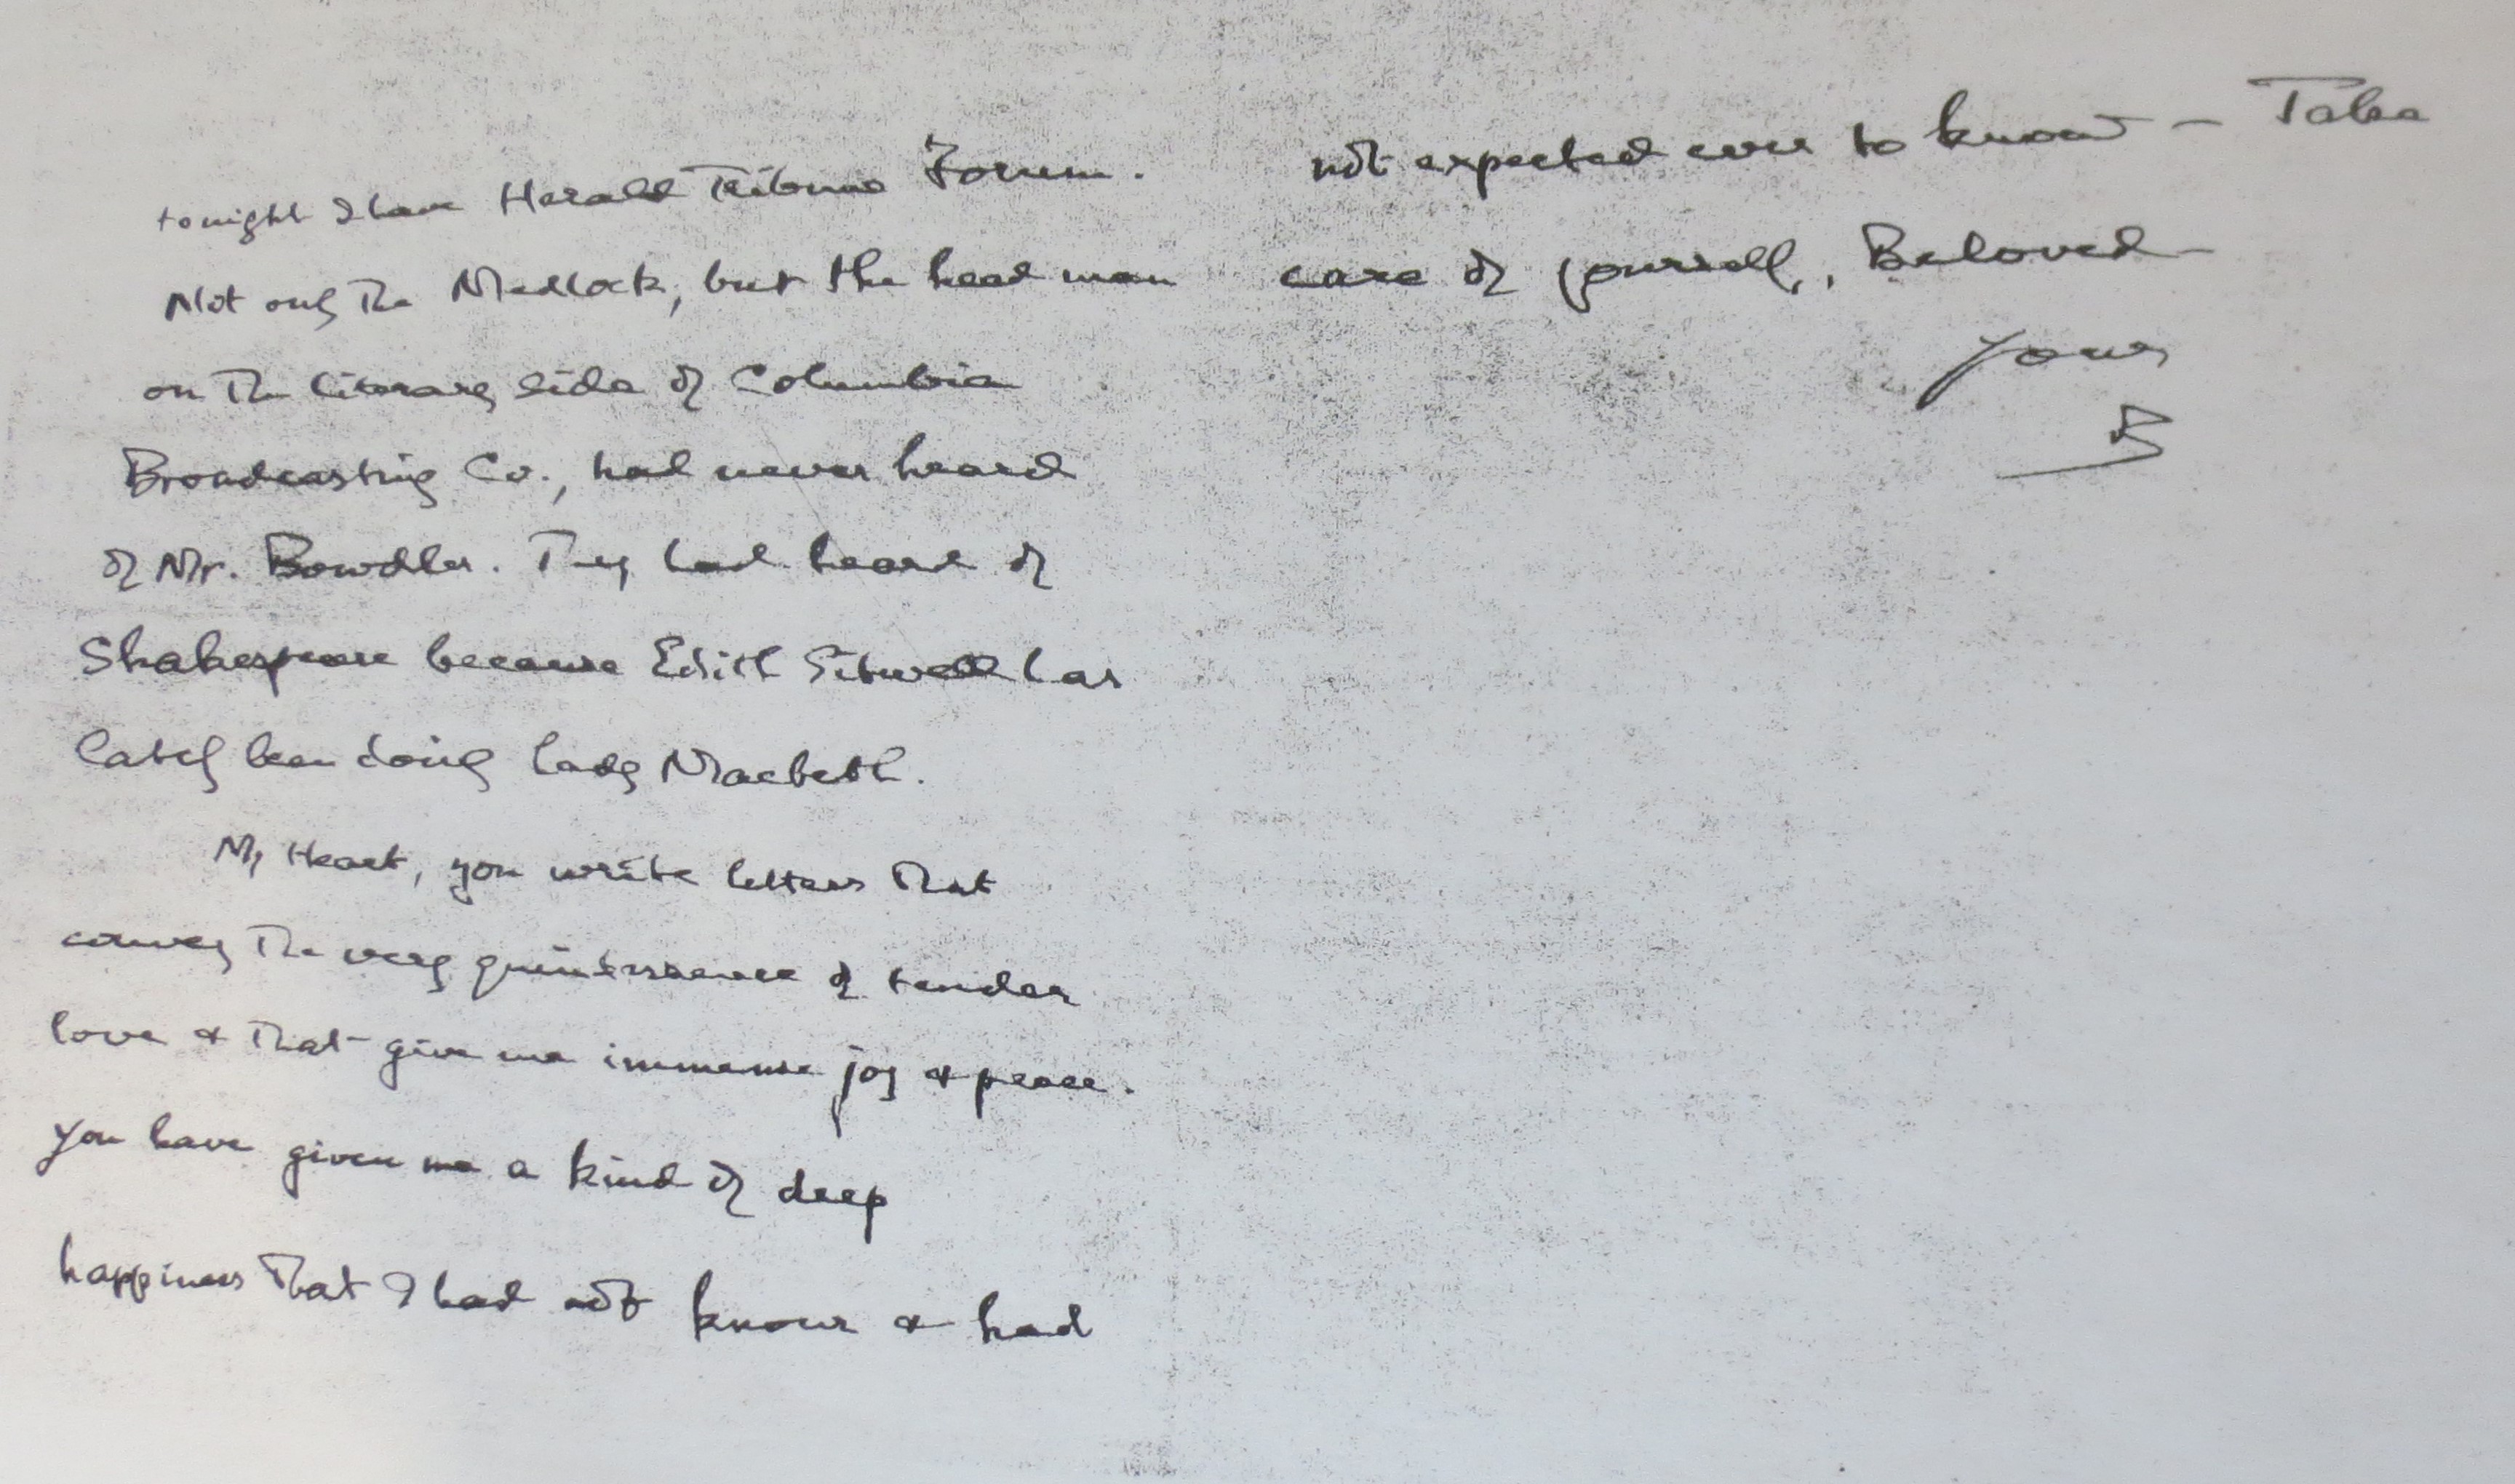 tonight I have Herald Tribune Forum.
Not only the Medlock, but the head man
on the literary side of Columbia
Broadcasting Co., had never heard
of Mr. Bowdler. They had heard of
Shakespeare because Edith Sitwell has
lately been doing Lady Macbeth.
My Heart, you write letters that
convey the very quintessence of tender
love & that give me immense joy & peace.
You have given me a kind of deep
happiness that I had not known & had
not expected ever to know — Take
care of yourself, Beloved —
Yours
B